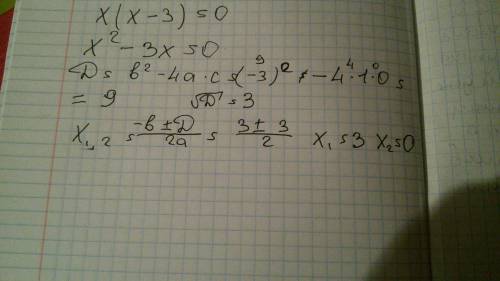 x(x-3)=0
x² - 3x = 0
D = b² - 4a·c = (-3)² - 4·1·0 =
= 9 √D = 3
x₁,₂ = (-b ± D)/2a = (3 ± 3)/2 x₁ = 3 x₂ = 0